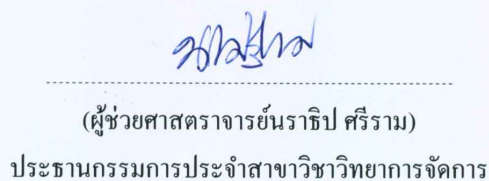 (ผู้ช่วยศาสตราจารย์นราธิป ศรีราม)
ประธานกรรมการประจำสาขาวิชาวิทยาการจัดการ